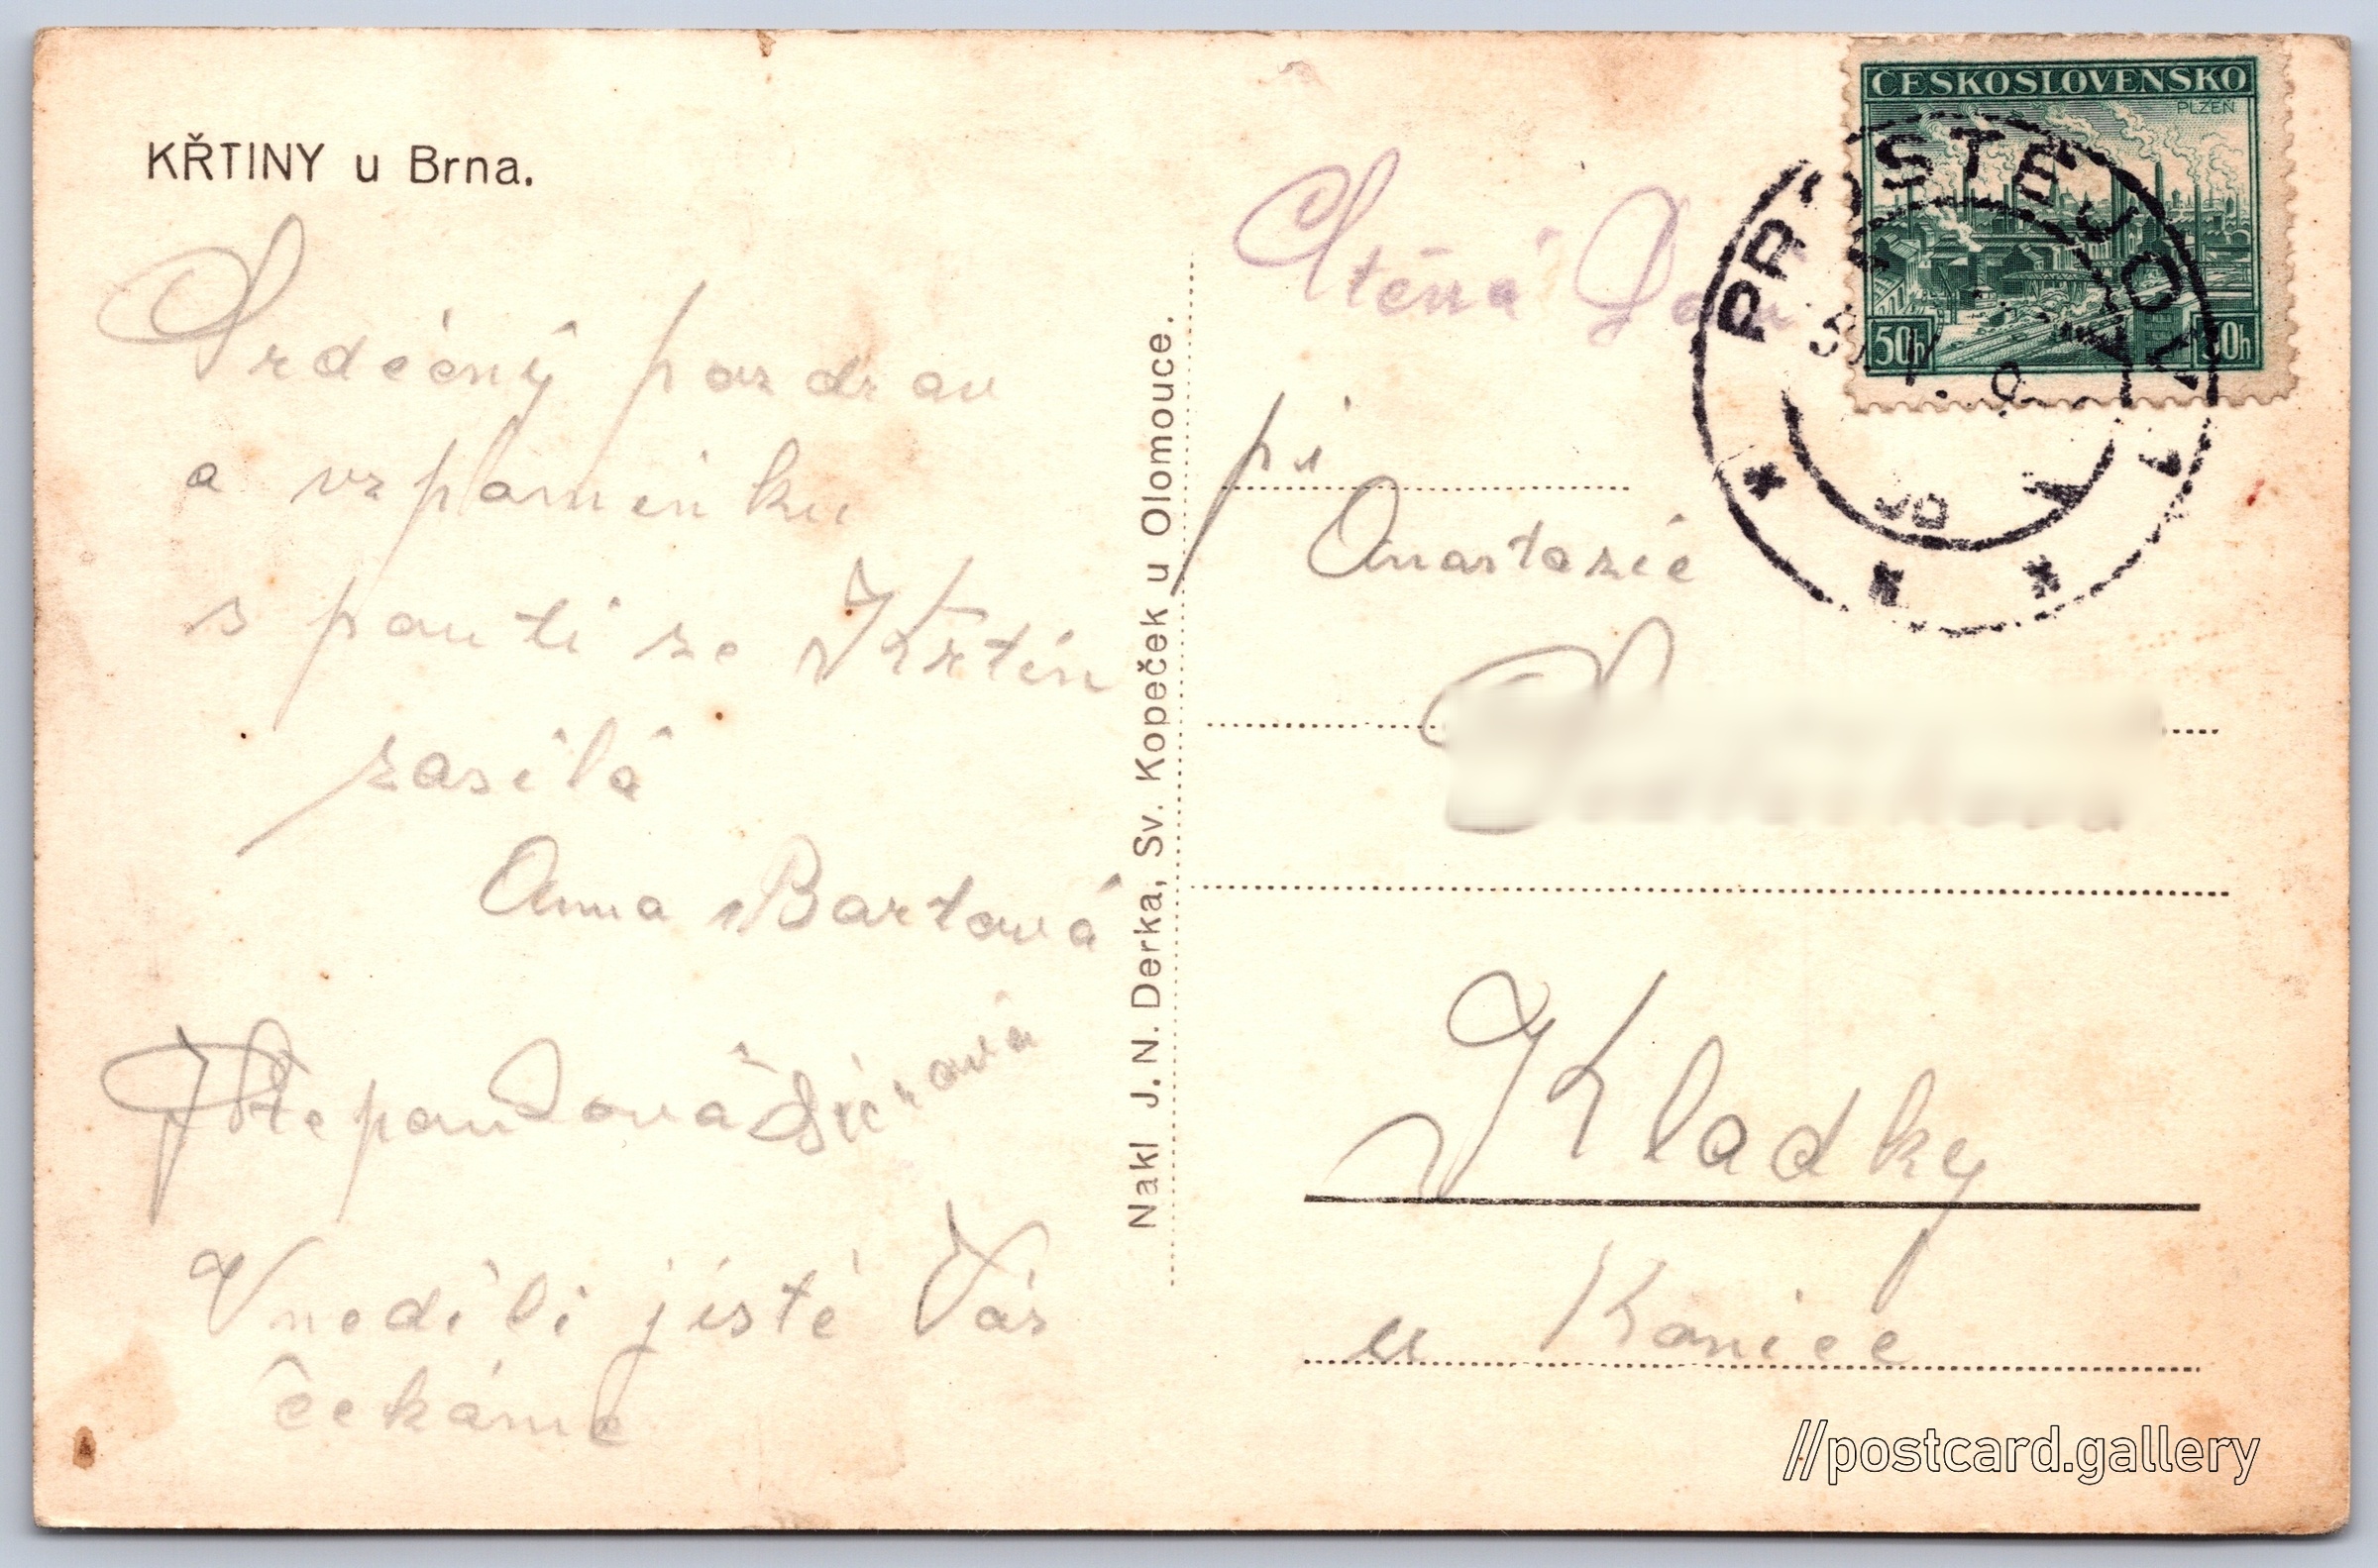 KŘTINY u Brna.
Srdečný pozdrav
a vzpomínku
s pouti ze Křtin
zasílá
Anna Bartová
Štepand ová
V neděli jistě Vás
čekáme
Nakl J. N. Derka, Sv. Kopeček u Olomouce.
Ctěná
pí
Anastazie
Kladky
u Konice
ČESKOSLOVENSKO
PLZEŇ
50h 50h
PROSTĚJOV
//postcard.gallery